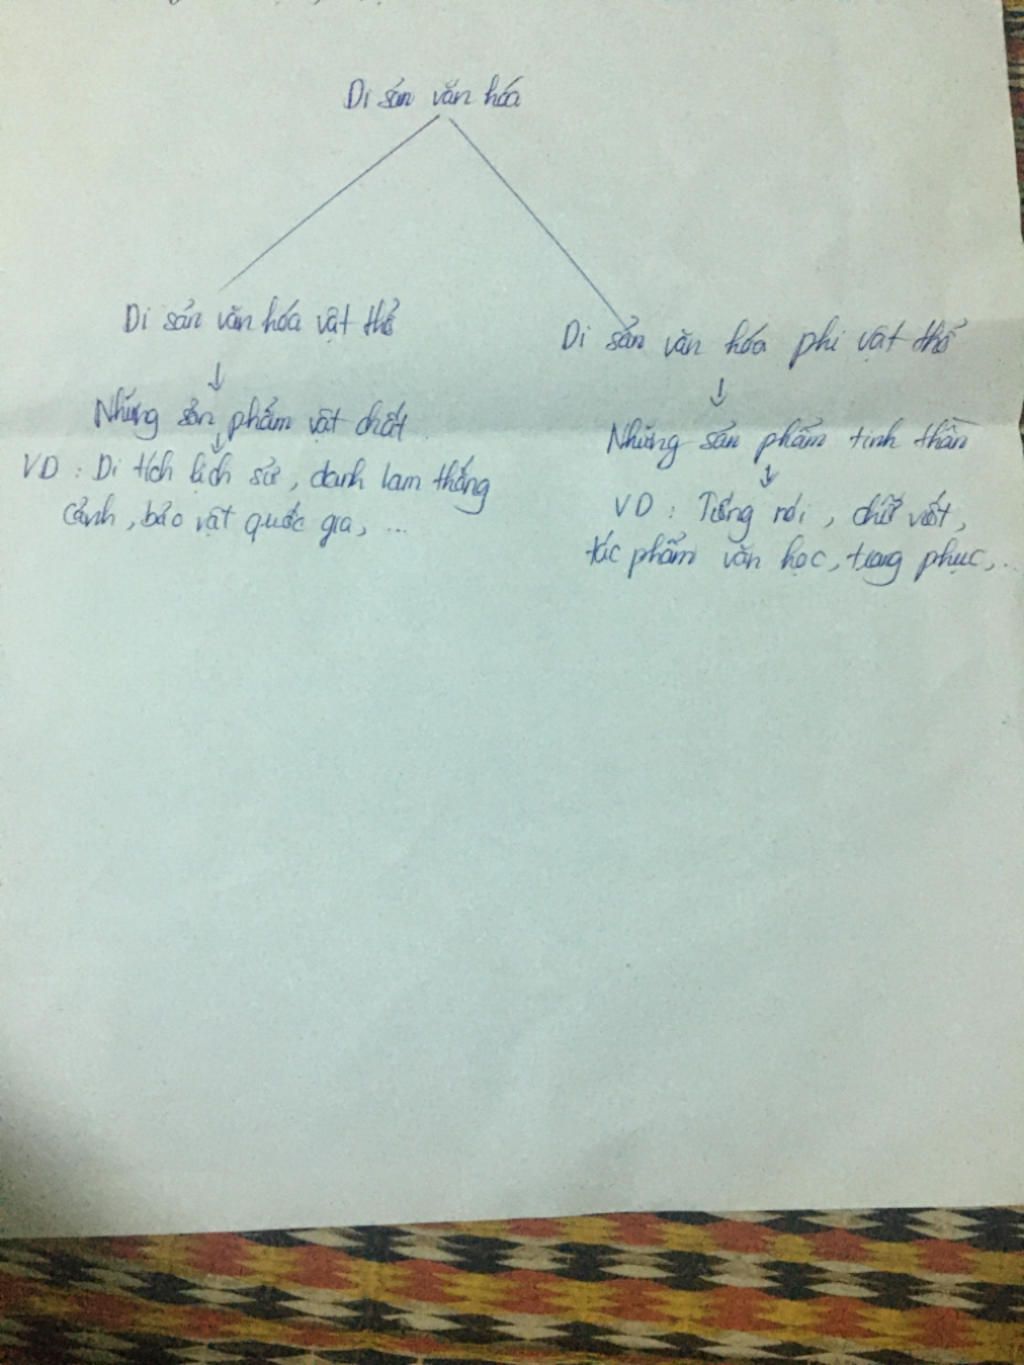 Di sản văn hóa
Di sản văn hóa vật thể
Những sản phẩm vật chất
VD : Di tích lịch sử, danh lam thắng
cảnh, bảo vật quốc gia, ...
Di sản văn hóa phi vật thể
Những sản phẩm tinh thần
VD : Tiếng nói, chữ viết,
tác phẩm văn học, trang phục, ...